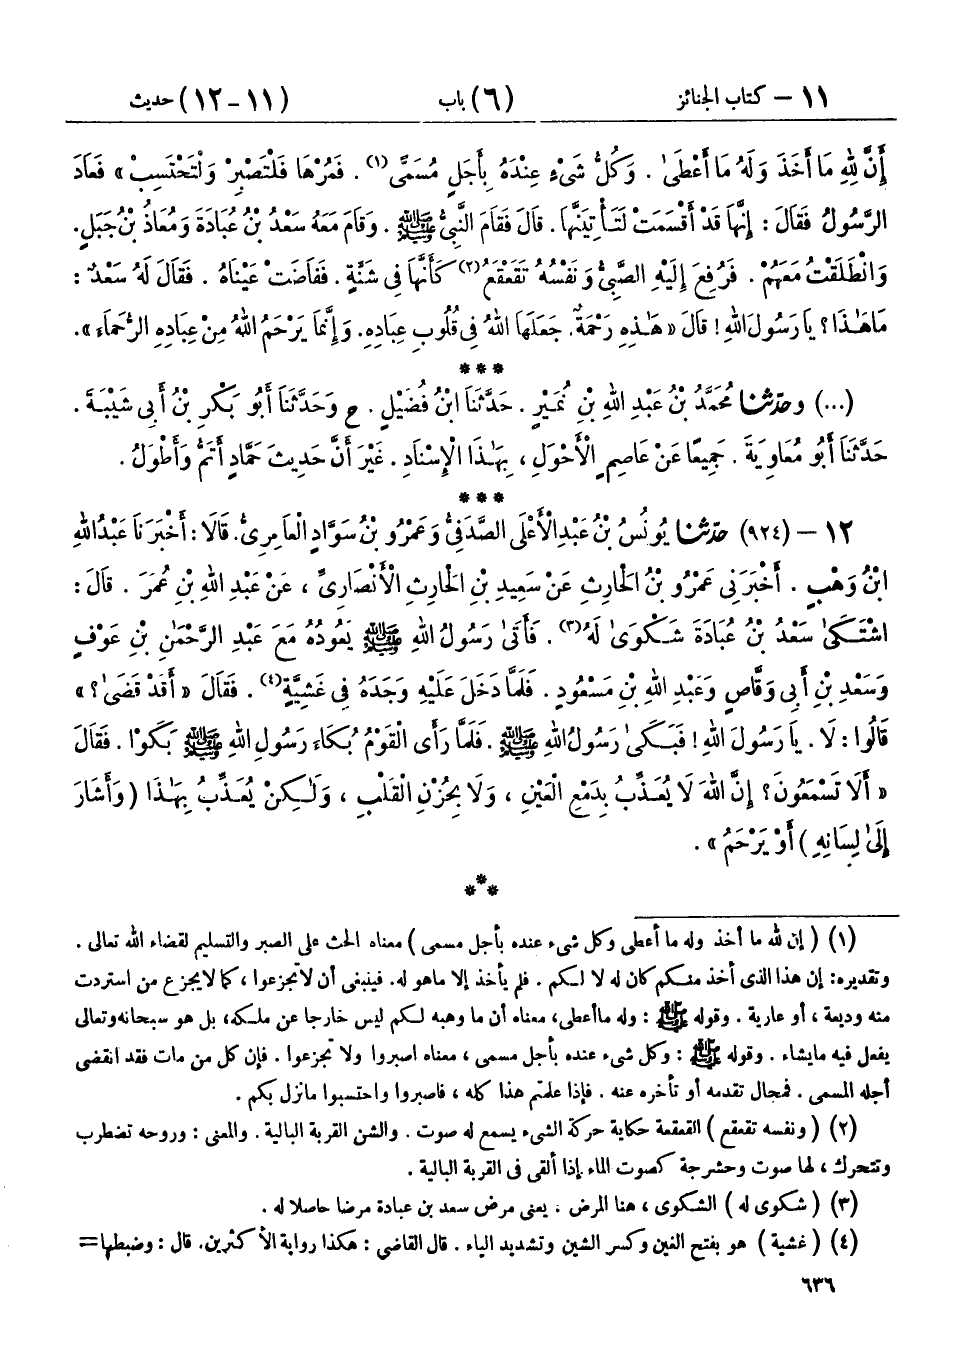 ١١ – كتاب الجنائز (٦) باب (١١-١٢) حديث
أَنَّ لِلهِ مَا أَخَذَ وَلَهُ مَا أَعْطَىٰ . وَكُلُّ شَيْءٍ عِنْدَهُ بِأَجَلٍ مُسَمًّى (١) . فَمُرْهَا فَلْتَصْبِرْ وَلْتَحْتَسِبْ » فَعَادَ
الرَّسُولُ فَقَالَ : إِنَّهَا قَدْ أَقْسَمَتْ لَتَأْتِيَنَّهَا . قَالَ فَقَامَ النَّبِيُّ ﷺ . وَقَامَ مَعَهُ سَعْدُ بْنُ عُبَادَةَ وَمُعَاذُ بْنُ جَبَلٍ .
وَانْطَلَقْتُ مَعَهُمْ . فَرُفِعَ إِلَيْهِ الصَّبِيُّ وَنَفْسُهُ تَقَعْقَعُ (٢) كَأَنَّهَا فِي شَنَّةٍ . فَفَاضَتْ عَيْنَاهُ . فَقَالَ لَهُ سَعْدٌ :
مَاهَٰذَا ؟ يَا رَسُولَ اللهِ ! قَالَ « هَٰذِهِ رَحْمَةٌ . جَعَلَهَا اللهُ فِي قُلُوبِ عِبَادِهِ . وَإِنَّمَا يَرْحَمُ اللهُ مِنْ عِبَادِهِ الرُّحَمَاءَ » .
***
(...) وحدثنا مُحَمَّدُ بْنُ عَبْدِ اللهِ بْنِ نُمَيْرٍ . حَدَّثَنَا ابْنُ فُضَيْلٍ . ح وَحَدَّثَنَا أَبُو بَكْرِ بْنُ أَبِي شَيْبَةَ .
حَدَّثَنَا أَبُو مُعَاوِيَةَ . جَمِيعًا عَنْ عَاصِمٍ الْأَحْوَلِ ، بِهَٰذَا الْإِسْنَادِ . غَيْرَ أَنَّ حَدِيثَ حَمَّادٍ أَتَمُّ وَأَطْوَلُ .
***
١٢ – (٩٢٤) حدثنا يُونُسُ بْنُ عَبْدِ الْأَعْلَى الصَّدَفِيُّ وَعَمْرُو بْنُ سَوَّادٍ الْعَامِرِيُّ . قَالَا : أَخْبَرَنَا عَبْدُ اللهِ
ابْنُ وَهْبٍ . أَخْبَرَنِي عَمْرُو بْنُ الْحَارِثِ عَنْ سَعِيدِ بْنِ الْحَارِثِ الْأَنْصَارِيِّ ، عَنْ عَبْدِ اللهِ بْنِ عُمَرَ . قَالَ :
اشْتَكَىٰ سَعْدُ بْنُ عُبَادَةَ شَكْوَىٰ لَهُ (٣) . فَأَتَىٰ رَسُولُ اللهِ ﷺ يَعُودُهُ مَعَ عَبْدِ الرَّحْمَٰنِ بْنِ عَوْفٍ
وَسَعْدِ بْنِ أَبِي وَقَّاصٍ وَعَبْدِ اللهِ بْنِ مَسْعُودٍ . فَلَمَّا دَخَلَ عَلَيْهِ وَجَدَهُ فِي غَشِيَّةٍ (٤) . فَقَالَ « أَقَدْ قَضَىٰ ؟ »
قَالُوا : لَا . يَا رَسُولَ اللهِ ! فَبَكَىٰ رَسُولُ اللهِ ﷺ . فَلَمَّا رَأَى الْقَوْمُ بُكَاءَ رَسُولِ اللهِ ﷺ بَكَوْا . فَقَالَ
« أَلَا تَسْمَعُونَ ؟ إِنَّ اللهَ لَا يُعَذِّبُ بِدَمْعِ الْعَيْنِ ، وَلَا بِحُزْنِ الْقَلْبِ ، وَلَٰكِنْ يُعَذِّبُ بِهَٰذَا ( وَأَشَارَ
إِلَىٰ لِسَانِهِ ) أَوْ يَرْحَمُ » .
***
(١) ( إن لله ما أخذ وله ما أعطى وكل شيء عنده بأجل مسمى ) معناه الحث على الصبر والتسليم لقضاء الله تعالى .
وتقديره: إن هذا الذى أخذ منكم كان له لا لكم . فلم يأخذ إلا ماهو له. فينبغى أن لاتجزعوا ، كما لايجزع من استردت
منه وديعة ، أو عارية . وقوله ﷺ : وله ماأعطى، معناه أن ما وهبه لكم ليس خارجا عن ملكه، بل هو سبحانه وتعالى
يفعل فيه مايشاء . وقوله ﷺ : وكل شيء عنده بأجل مسمى ، معناه اصبروا ولا تجزعوا . فإن كل من مات فقد انقضى
أجله المسمى . فمحال تقدمه أو تأخره عنه . فإذا علمتم هذا كله ، فاصبروا واحتسبوا مانزل بكم .
(٢) ( ونفسه تقعقع ) القعقعة حكاية حركة الشيء يسمع له صوت . والشن القربة البالية . والمعنى : وروحه تضطرب
وتتحرك ، لها صوت وحشرجة كصوت الماء إذا ألقى فى القربة البالية .
(٣) ( شكوى له ) الشكوى ، هنا المرض . يعنى مرض سعد بن عبادة مرضا حاصلا له .
(٤) ( غشية ) هو بفتح الغين وكسر الشين وتشديد الياء . قال القاضى : هكذا رواية الأكثرين. قال : وضبطها=
٦٣٦